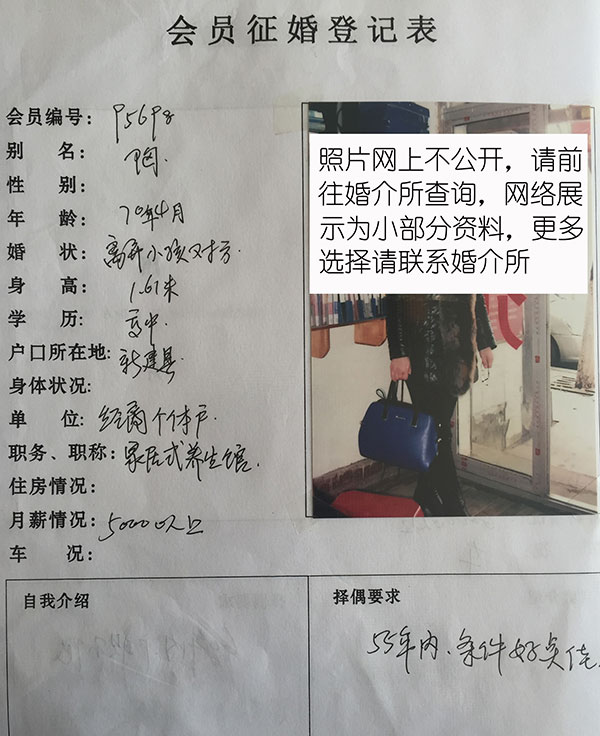 会员征婚登记表
会员编号: P5698
别 名:
性 别:
年 龄: 70年4月
婚 状: 离异小孩对方
身 高: 1.61米
学 历: 高中
户口所在地: 新建县
身体状况:
单 位: 经商个体户
职务、职称: 家居式养生馆
住房情况:
月薪情况: 5000以上
车 况:
照片网上不公开，请前
往婚介所查询，网络展
示为小部分资料，更多
选择请联系婚介所
自我介绍
择偶要求
55年内、条件好点佳